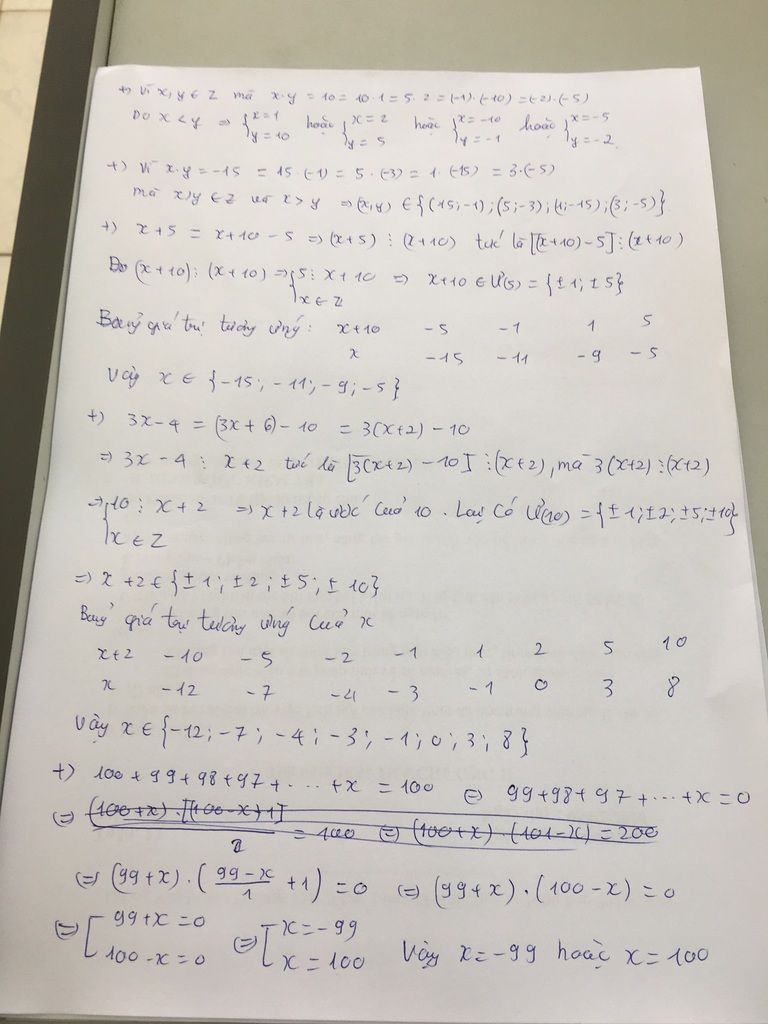 +) Vì x,y ∈ Z mà x.y = 10 = 10.1 = 5.2 = (-1).(-10) = (-2).(-5)
Do x < y ⇒ {x=1 y=10 hoặc {x=2 y=5 hoặc {x=-10 y=-1 hoặc {x=-5 y=-2
+) Vì x.y = -15 = 15.(-1) = 5.(-3) = 1.(-15) = 3.(-5)
mà x,y ∈ Z và x > y ⇒ (x,y) ∈ {(15;-1);(5;-3);(1;-15);(3;-5)}
+) x+5 = x+10-5 ⇒ (x+5) ⋮ (x+10) tức là [(x+10)-5] ⋮ (x+10)
Do (x+10) ⋮ (x+10) ⇒ {5 ⋮ x+10 x ∈ Z ⇒ x+10 ∈ Ư(5) = {±1; ±5}
Bảng giá trị tương ứng: x+10 -5 -1 1 5
x -15 -11 -9 -5
Vậy x ∈ {-15; -11; -9; -5}
+) 3x-4 = (3x+6)-10 = 3(x+2)-10
⇒ 3x-4 ⋮ x+2 tức là [3(x+2)-10] ⋮ (x+2), mà 3(x+2) ⋮ (x+2)
⇒ {10 ⋮ x+2 x ∈ Z ⇒ x+2 là ước của 10. Lại có Ư(10) = {±1; ±2; ±5; ±10}
⇒ x+2 ∈ {±1; ±2; ±5; ±10}
Bảng giá trị tương ứng của x
x+2 -10 -5 -2 -1 1 2 5 10
x -12 -7 -4 -3 -1 0 3 8
Vậy x ∈ {-12; -7; -4; -3; -1; 0; 3; 8}
+) 100+99+98+97+...+x = 100 ⇔ 99+98+97+...+x = 0
⇔ (100+x).[(100-x)+1] / 2 = 100 ⇔ (100+x).(101-x) = 200
⇔ (99+x).((99-x)/1 + 1) = 0 ⇔ (99+x).(100-x) = 0
⇔ [99+x=0 100-x=0 ⇔ [x=-99 x=100 Vậy x=-99 hoặc x=100